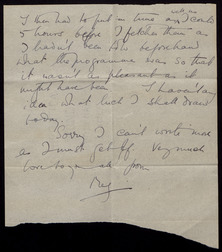 I then had to put in time
5 hours before I fetched them as
I hadn't been told beforehand
what the programme was so that
it wasn't as pleasant as it
might have been I haven't any
idea what luck I shall draw
today.
Sorry I can't write more
as I must get off Very much
love to you all from
Reg